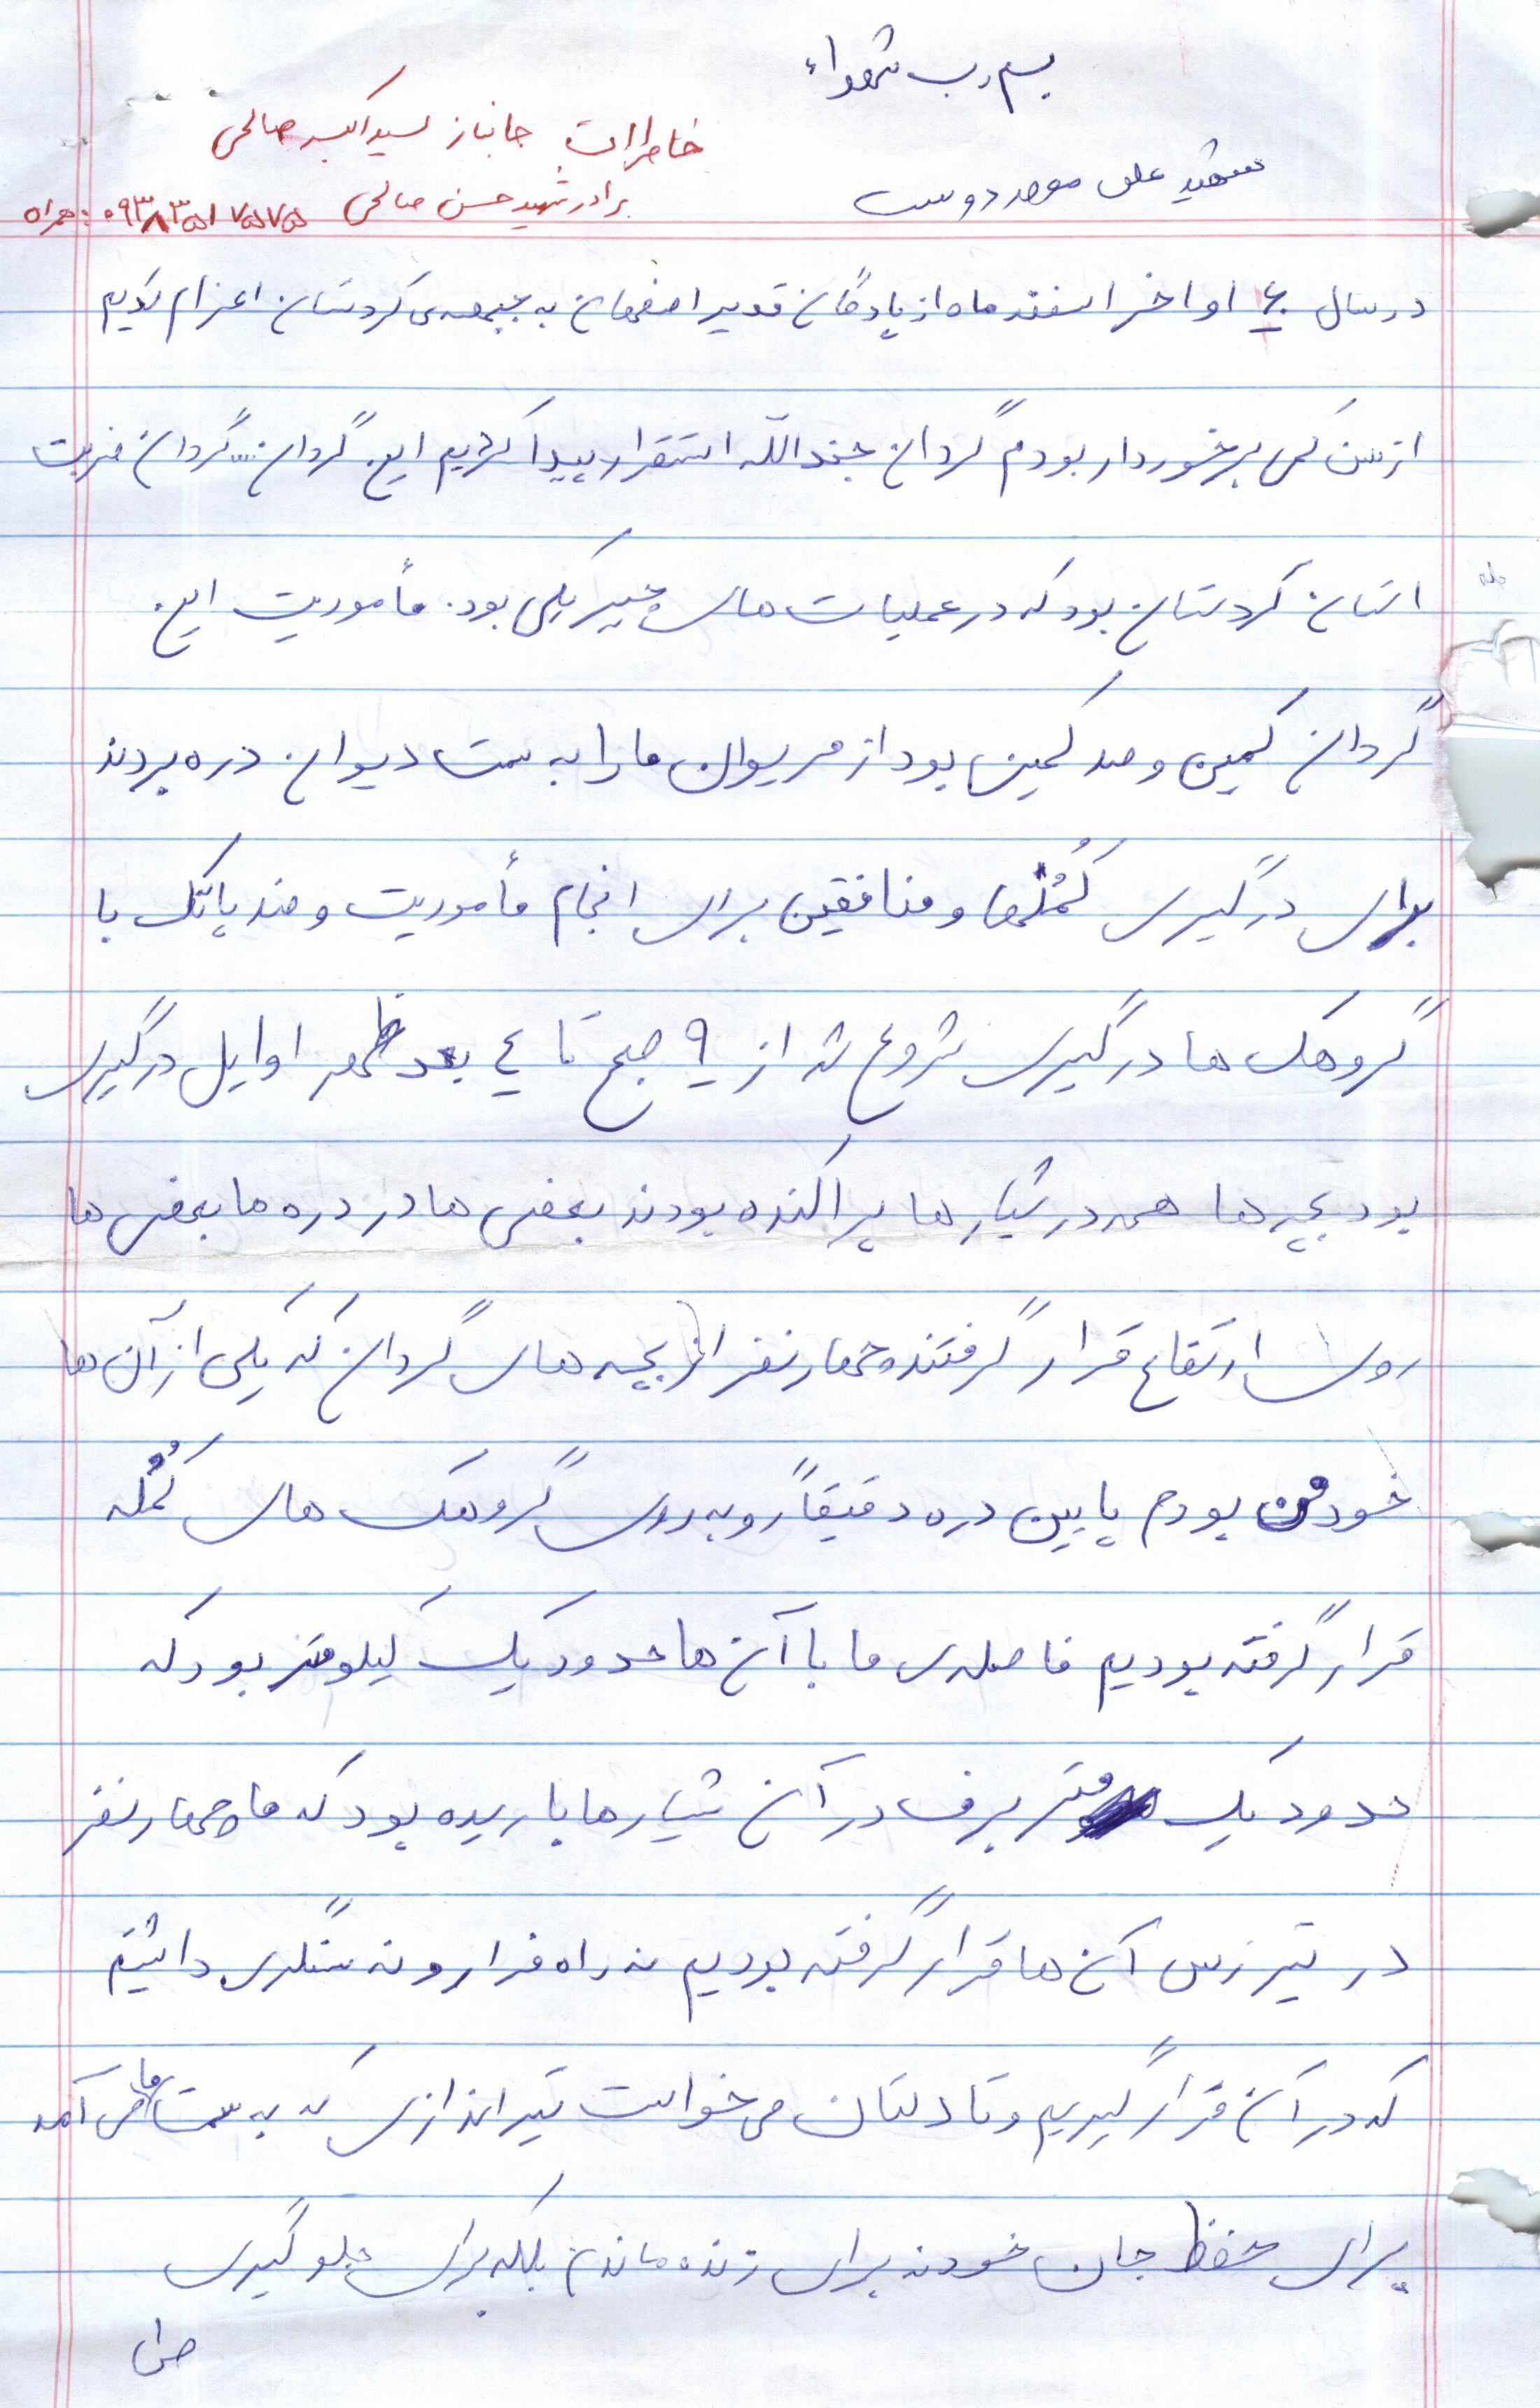 بسم رب شهداء
خاطرات جانباز سید اکبر صالحی
شهید علی موحد دوست
برادر شهید حسن صالحی همراه: ۰۹۳۸۳۵۱۷۵۷۵
در سال ۶۰ اواخر اسفند ماه از پادگان غدیر اصفهان به جبهه‌ی کردستان اعزام بودیم
از سن کمی برخوردار بودم گردان جندالله استقرار پیدا کردیم این گردان.... گردان ضربت
استان کردستان بود که در عملیات های چیریکی بود. مأموریت این
گردان کمین و ضد کمین بود از مریوان ما را به سمت دیوان دره بردند
برای درگیری کُمُله‌ها و منافقین برای انجام مأموریت و ضد پاتک با
گروهک ها درگیری شروع شد از ۹ صبح تا ٤ بعد ظهر اوایل درگیری
بود بچه ها همه در شیار ها پراکنده بودند بعضی ها در دره ها بعضی ها
روی ارتفاع قرار گرفتند و چهار نفر از بچه های گردان که یکی از آن ها
خود من بودم پایین دره دقیقاً رو به روی گروهک های کُمُله
قرار گرفته بودیم فاصله‌ی ما با آن ها حدود یک کیلومتر بود که
حدود یک متر برف در آن شیارها باریده بود که ما چهار نفر
در تیررس آن ها قرار گرفته بودیم نه راه فرار و نه سنگری داشتیم
که در آن قرار گیریم و تا دلتان می خواست تیراندازی که به سمت ما می آمد
برای حفظ جان خود نه برای زنده ماندن بلکه برای جلوگیری
ص۱